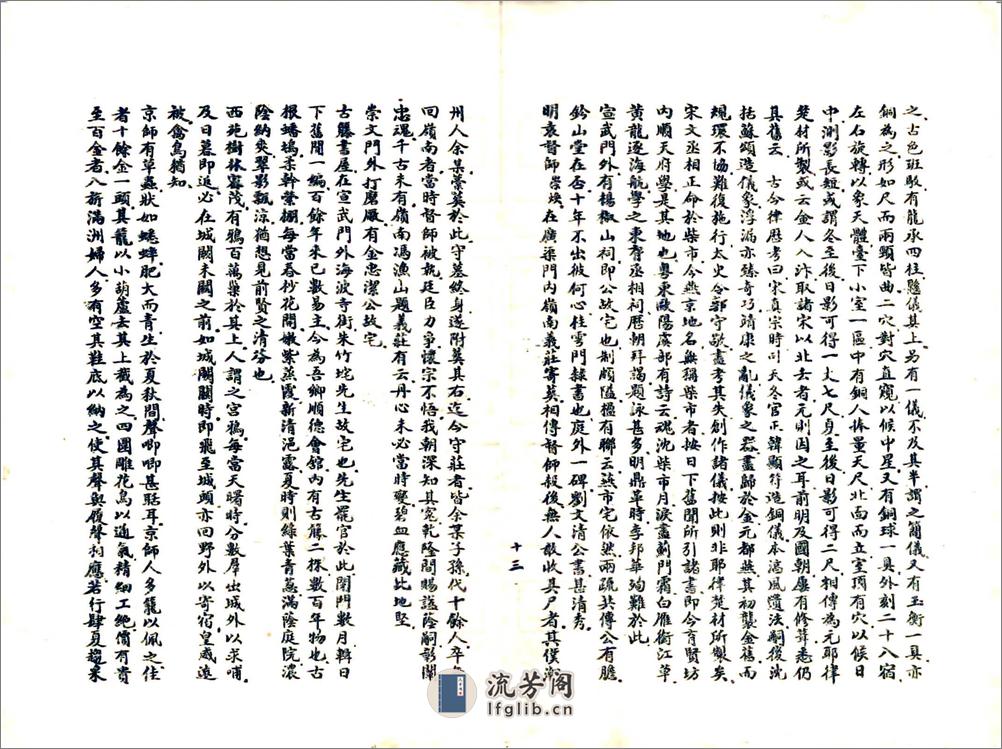 之古色班駁有龍承四柱懸儀其上另有一儀不及其半謂之簡儀又有玉衡一具亦
銅為之形如尺而兩頭皆曲二穴對穴直窺以候中星又有銅球一具外刻二十八宿
左右旋轉以象天體臺下小室一區中有銅人捧量天尺北面而立室頂有穴以候日
中測影長短或謂冬至後日影可得一丈七尺夏至後日影可得二尺相傳為元耶律
楚材所製或云金人入汴取諸宋以北去者元則因之耳前明及國朝屢有修葺悉仍
其舊云 古今律歷考曰宋真宗時司天冬官正韓顯符造銅儀本淳風遺法嗣後沈
括蘇頌造儀象浮漏亦臻奇巧靖康之亂儀象之器盡歸於金元都燕其初襲金舊而
規環不協難復施行太史令郭守敬盡考其失創作諸儀按此則非耶律楚材所製矣
宋文丞相正命於柴市今燕京地名無稱柴市者按日下舊聞所引諸書即今育賢坊
內順天府學是其地也粵東歐陽虞部有詩云魂沈柴市月淚盡薊門霜白雁銜江草
黃龍逐海航學之東脊丞相祠歷朝拜謁題詠甚多明鼎革時李邦華殉難於此
宣武門外有楊椒山祠即公故宅也制頗隘楹有聯云燕市宅依然兩疏共傳公有膽
鈐山堂在否十年不出彼何心柱雲門隸書也庭外一碑劉文清公書甚清秀
明袁督師崇煥在廣渠門內嶺南義莊寄葬相傳督師殺後無人敢收其尸者其僕潮
十三
州人余某藁葬於此守墓終身遂附葬其右迄今守莊者皆余某子孫代十餘人卒無
回嶺南者當時督師被執廷臣力爭懷宗不悟我朝深知其冤乾隆間賜諡蔭嗣彰闡
忠魂千古未有嶺南馮漁山題義莊有云丹心未必當時變碧血應藏此地堅
崇文門外打磨厰有金忠潔公故宅
古籐書屋在宣武門外海波寺街朱竹垞先生故宅也先生罷官於此閉門數月輯日
下舊聞一編百餘年來已數易主今為吾鄉順德會館內有古籐二株數百年物也古
根蟠塢柔幹縈棚每當春杪花開嫩紫蒸霞新清浥露夏時則綠葉青蔥滿蔭庭院濃
陰納爽翠影飄涼猶想見前賢之清芬也
西苑樹林蓊茂有鴉百萬巢於其上人謂之宮鴉每當天曙時分數羣出城外以求哺
及日暮即返必在城闕未闔之前如城闕闔時即飛至城頭亦回野外以寄宿皇威遠
被禽鳥猶知
京師有草蟲狀如蟋蟀肥大而青生於夏秋間聲唧唧甚聒耳京師人多籠以佩之佳
者十餘金一頭其籠以小葫蘆去其上截為之四圍雕花鳥以通氣精細工絕價有貴
至百金者八祈滿洲婦人多有空其鞋底以納之使其聲與履聲相應若行肆夏趨采
流芳阁
lfglib.cn